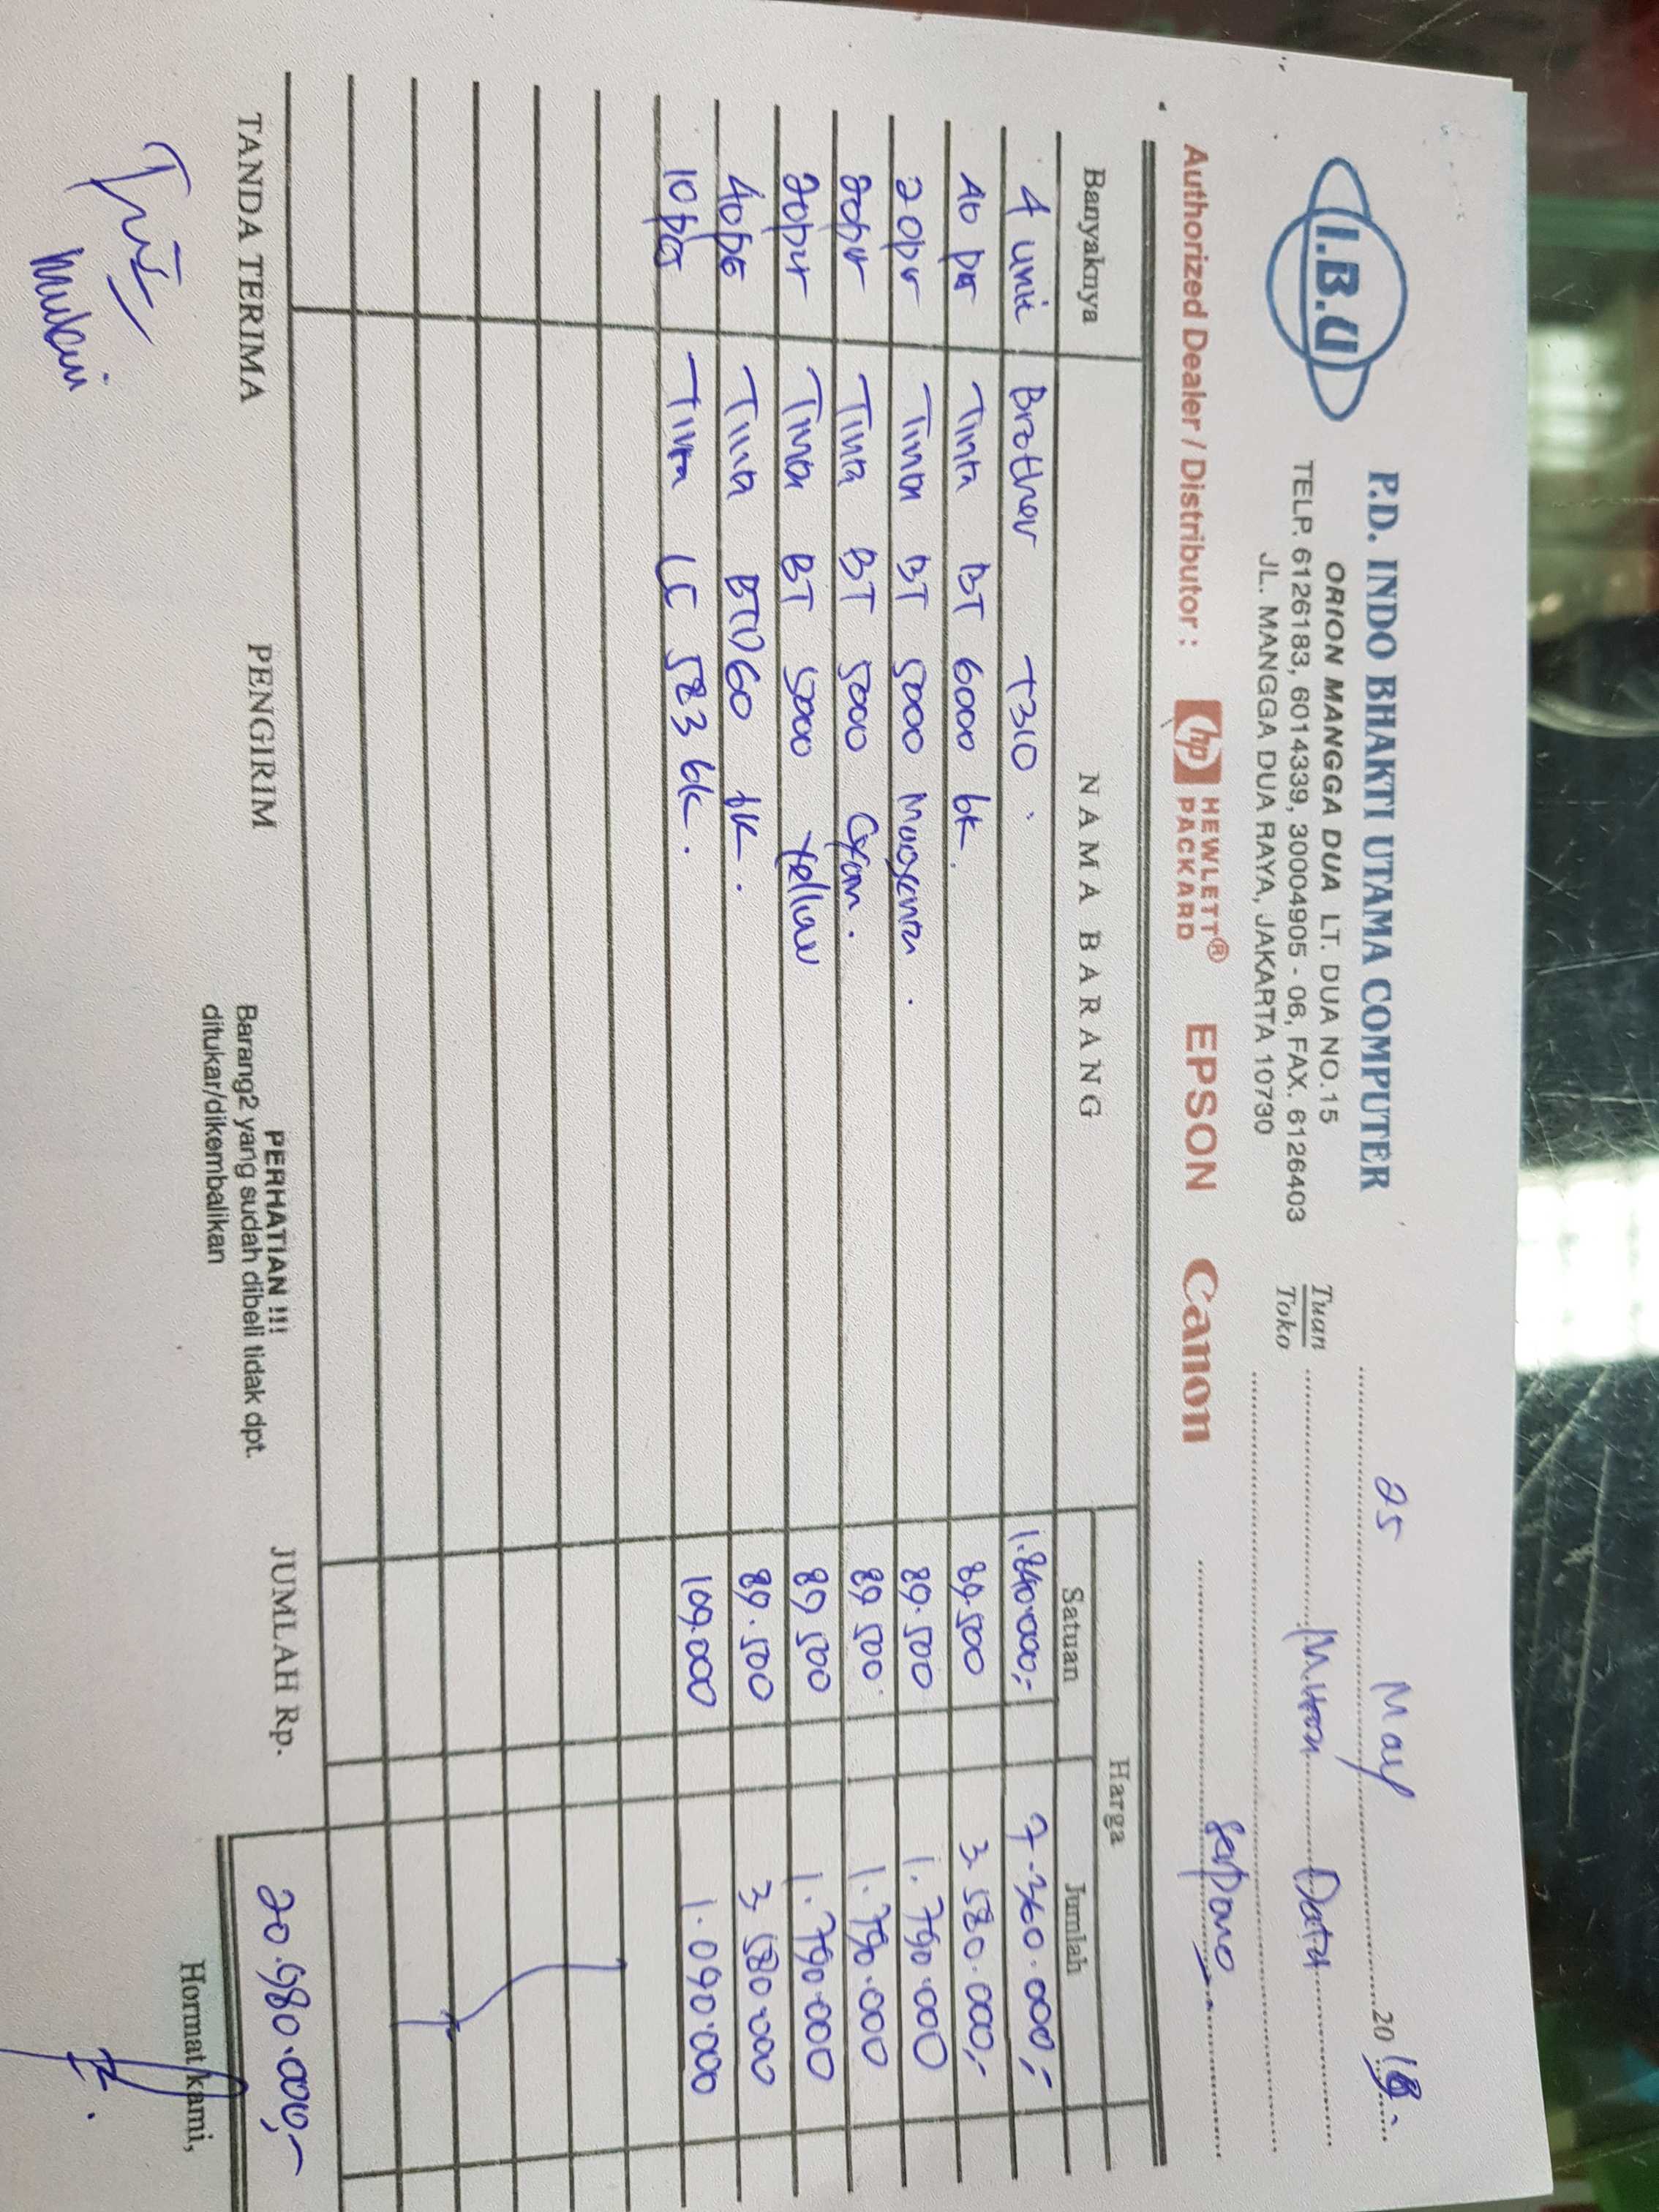 I.B.U
P.D. INDO BHAKTI UTAMA COMPUTER
ORION MANGGA DUA LT. DUA NO.15
TELP. 6126183, 6014339, 30004905 - 06, FAX. 6126403
JL. MANGGA DUA RAYA, JAKARTA 10730
25 May 2018
Tuan
Toko
Data
Serpong
Authorized Dealer / Distributor : hp HEWLETT® PACKARD EPSON Canon
Banyaknya NAMA BARANG Harga
Satuan Jumlah
4 unit Brother T310. 1.840.000,- 7.360.000,-
40 pcs Tinta BT 6000 bk. 89.500 3.580.000,-
20 pcs Tinta BT 5000 Magenta. 89.500 1.790.000
20 pcs Tinta BT 5000 Cyan. 89.500 1.790.000
20 pcs Tinta BT 5000 Yellow 89.500 1.790.000
40 pcs Tinta BTD60 bk. 89.500 3.580.000
10 pcs Tinta LC 583 bk. 109.000 1.090.000
TANDA TERIMA PENGIRIM
PERHATIAN !!!
Barang2 yang sudah dibeli tidak dpt.
ditukar/dikembalikan
JUMLAH Rp. 20.980.000,-
Hormat kami,